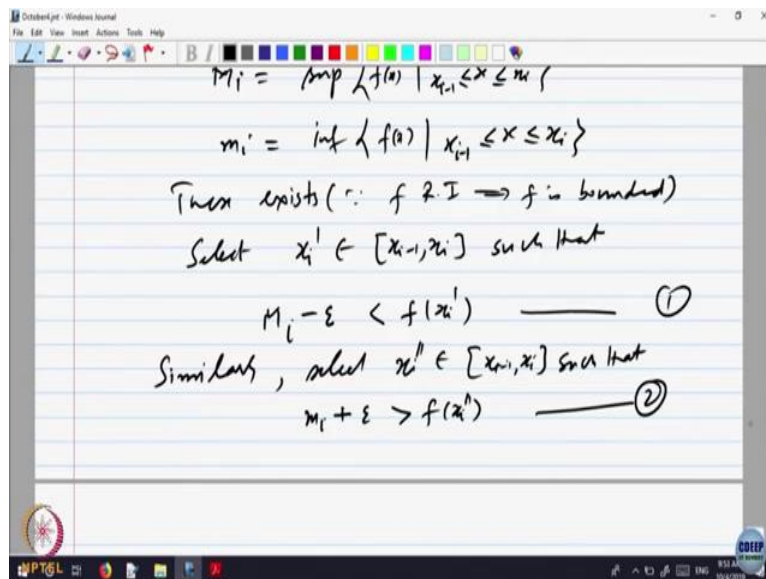 October4.jnt - Windows Journal
File Edit View Insert Actions Tools Help
B I
Mi = sup {f(x) | xi-1 ≤ x ≤ xi}
mi = inf {f(x) | xi-1 ≤ x ≤ xi}
These exists (∵ f R.I ⟹ f is bounded)
Select xi' ∈ [xi-1, xi] such that
Mi - ε < f(xi') ——— ①
Similarly, select xi'' ∈ [xi-1, xi] such that
mi + ε > f(xi'') ——— ②
NPTEL
CDEEP
IIT BOMBAY
ENG
10/4/2019